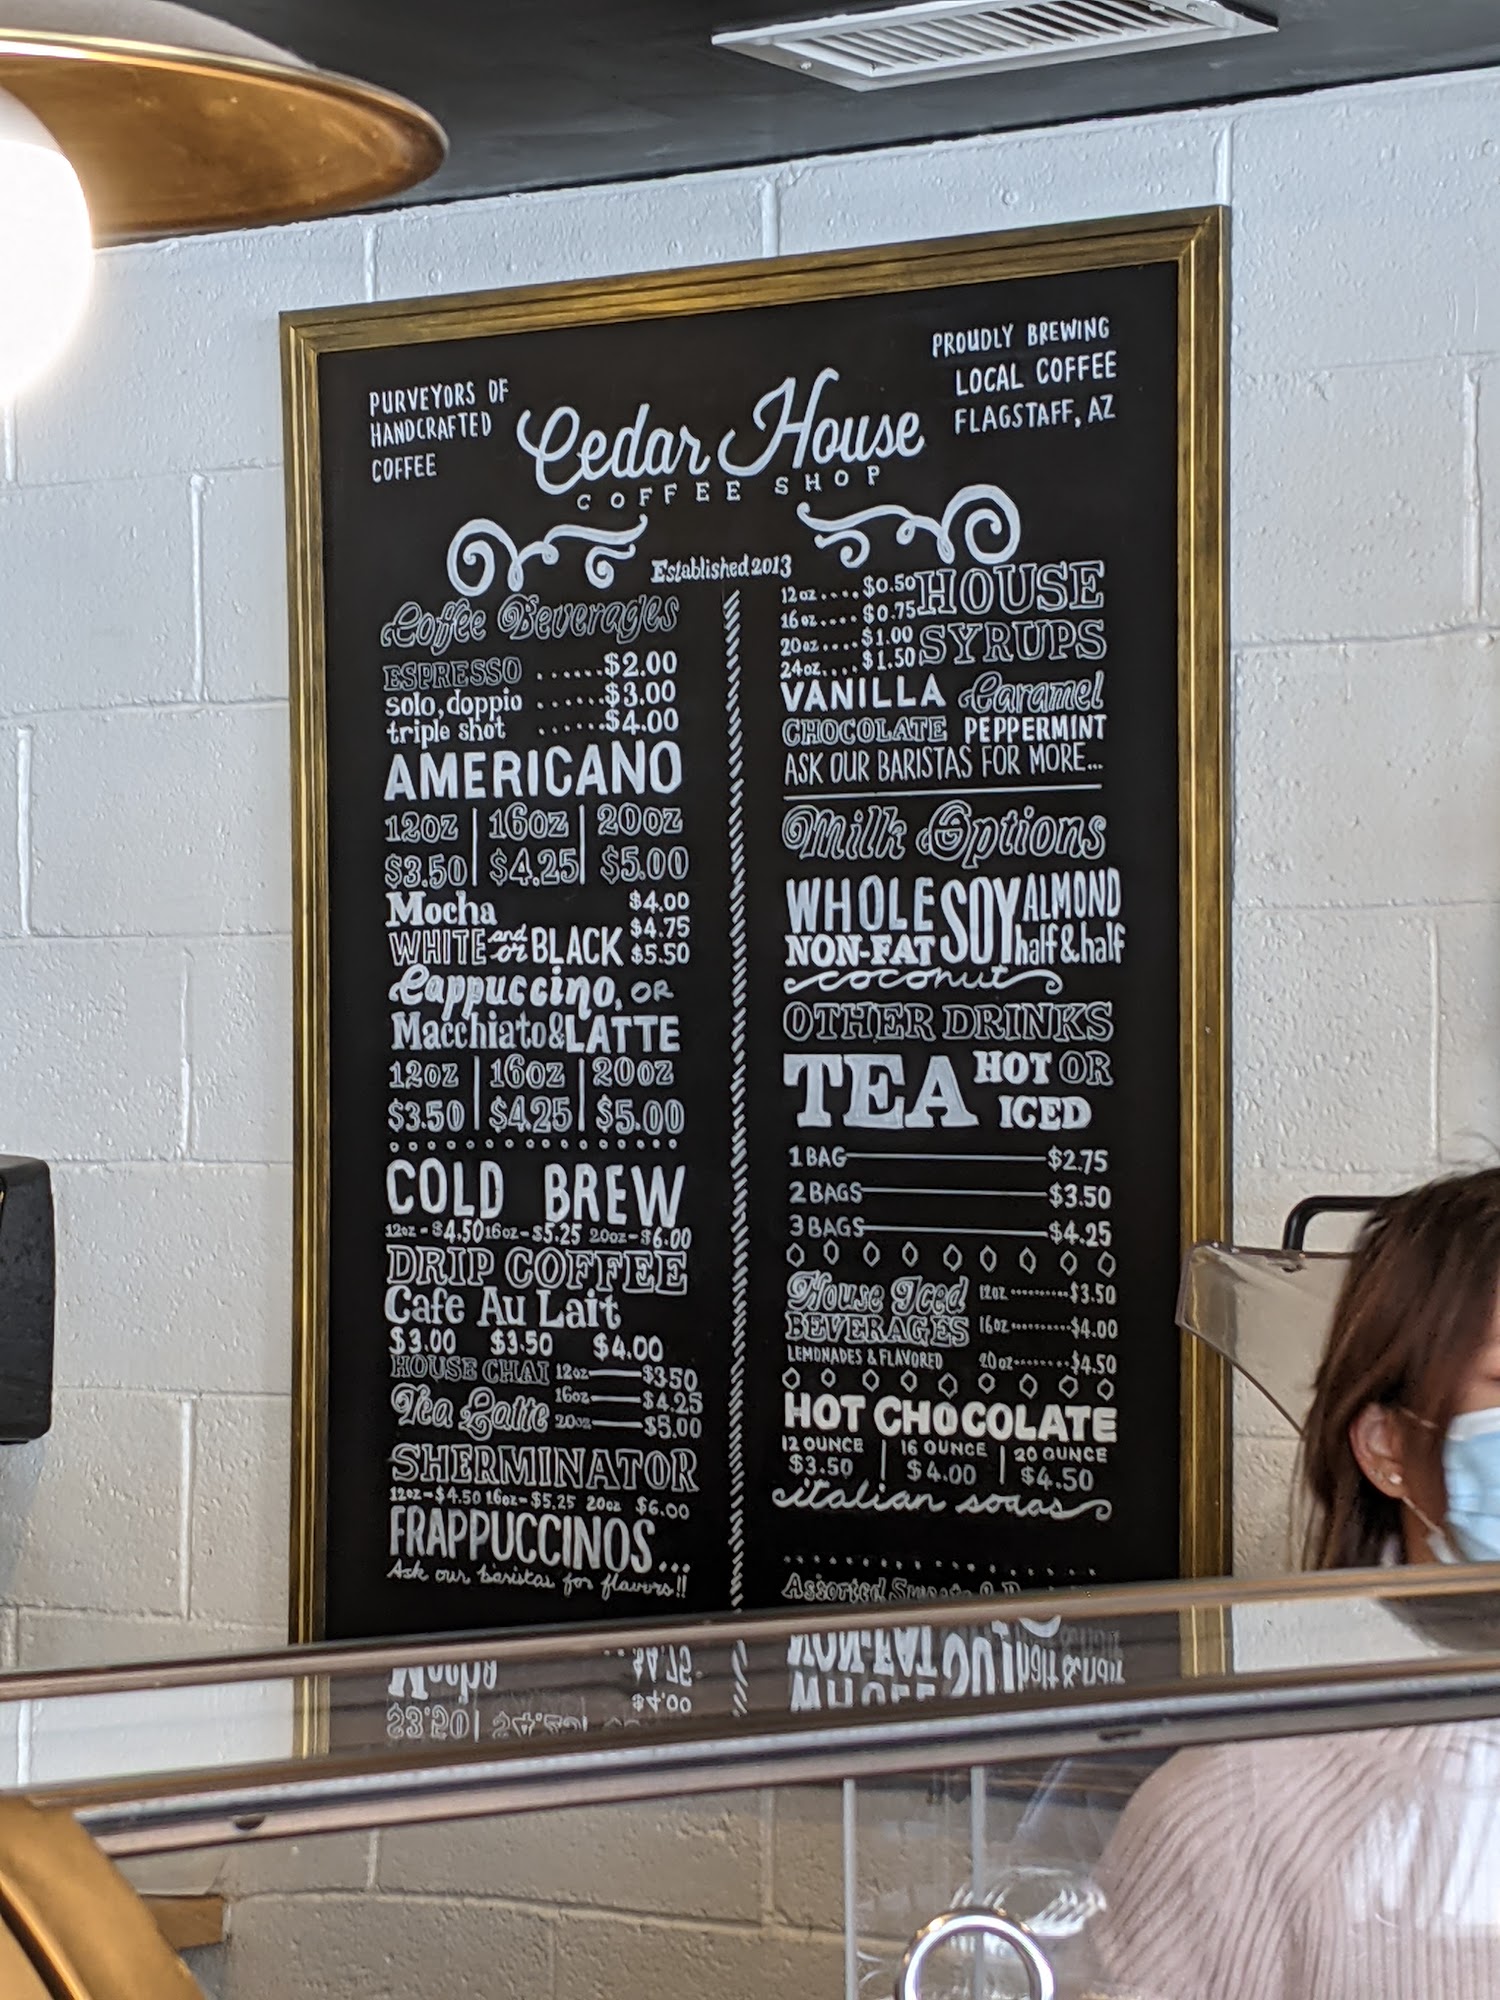 PURVEYORS OF
HANDCRAFTED
COFFEE
PROUDLY BREWING
LOCAL COFFEE
FLAGSTAFF, AZ
Cedar House
COFFEE SHOP
Established 2013
Coffee Beverages
ESPRESSO ......$2.00
solo, doppio ......$3.00
triple shot ......$4.00
AMERICANO
12oz | 16oz | 20oz
$3.50 | $4.25 | $5.00
Mocha $4.00
WHITE and or BLACK $4.75
$5.50
Cappuccino, OR
Macchiato & LATTE
12oz | 16oz | 20oz
$3.50 | $4.25 | $5.00
COLD BREW
12oz-$4.50 16oz-$5.25 20oz-$6.00
DRIP COFFEE
Cafe Au Lait
$3.00 $3.50 $4.00
HOUSE CHAI 12oz—$3.50
Tea Latte 16oz—$4.25
20oz—$5.00
SHERMINATOR
12oz-$4.50 16oz-$5.25 20oz $6.00
FRAPPUCCINOS...
Ask our baristas for flavors!!
HOUSE
SYRUPS
12oz....$0.50
16oz....$0.75
20oz....$1.00
24oz....$1.50
VANILLA Caramel
CHOCOLATE PEPPERMINT
ASK OUR BARISTAS FOR MORE...
Milk Options
WHOLE SOY ALMOND
NON-FAT half & half
coconut
OTHER DRINKS
TEA HOT OR
ICED
1 BAG—$2.75
2 BAGS—$3.50
3 BAGS—$4.25
House Iced 12oz..........$3.50
BEVERAGES 16oz..........$4.00
LEMONADES & FLAVORED 20oz........$4.50
HOT CHOCOLATE
12 OUNCE | 16 OUNCE | 20 OUNCE
$3.50 | $4.00 | $4.50
italian sodas
Assorted